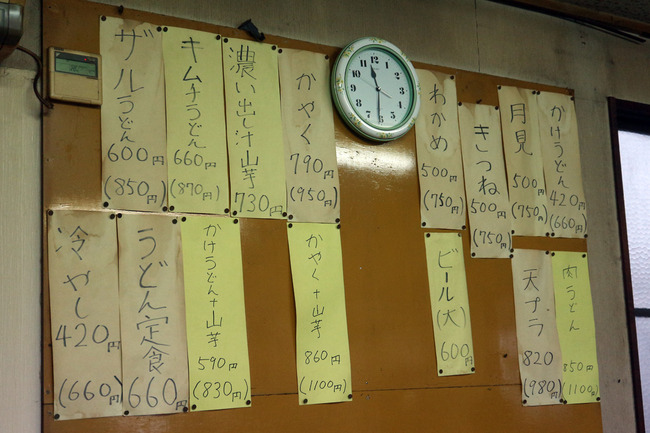 かけうどん
420円
(660円)
月見
500円
(750円)
きつね
500円
(750円)
わかめ
500円
(750円)
かやく
790円
(950円)
濃い出し汁山芋
730円
キムチうどん
660円
(870円)
ザルうどん
600円
(850円)
肉うどん
850円
(1100円)
天プラ
820円
(980円)
ビール(大)
600円
かやく+山芋
860円
(1100円)
かけうどん+山芋
590円
(830円)
うどん定食
660円
冷やし
420円
(660円)
12
1
2
3
4
5
6
7
8
9
10
11